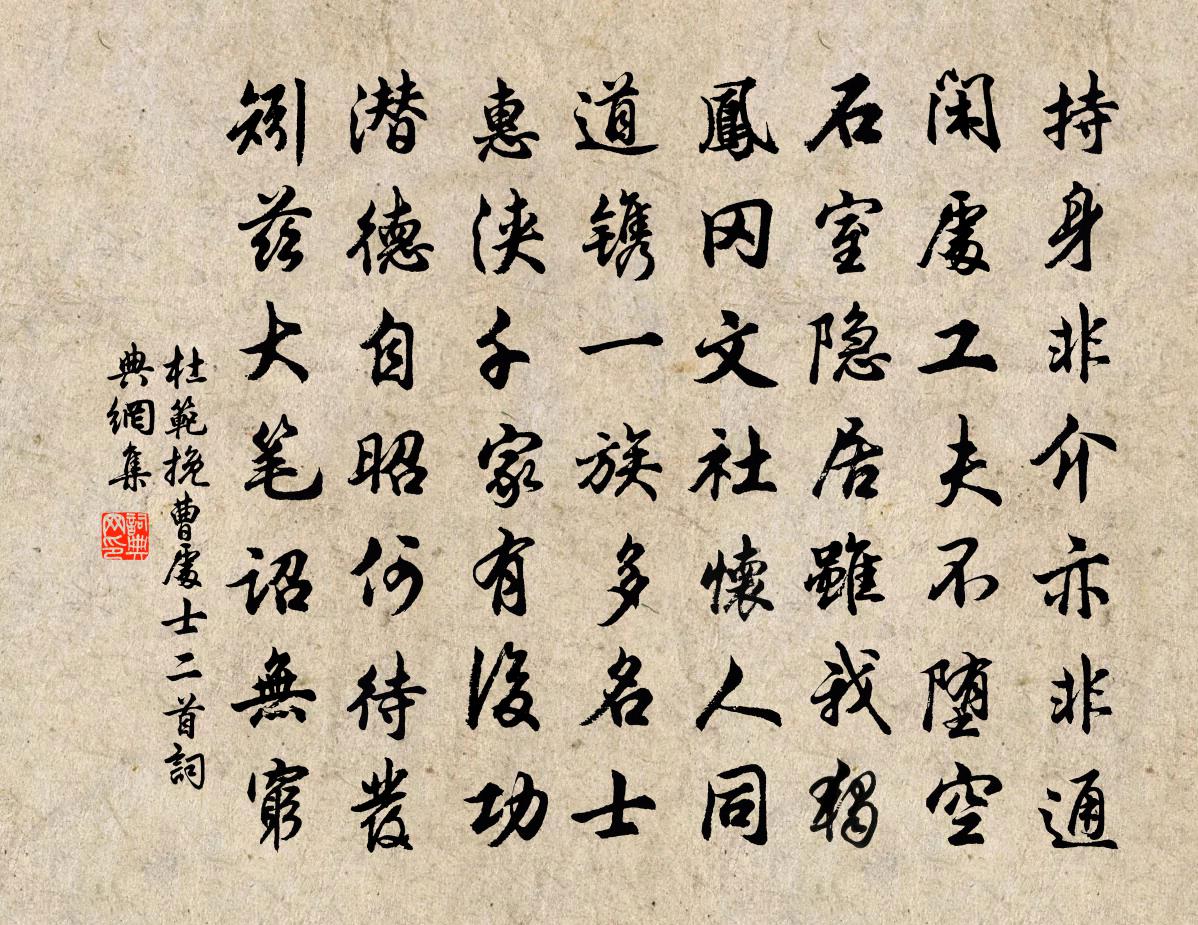 持身非介亦非通
閑處工夫不堕空
石室隐居雖我獨
鳳冈文社懷人同
道镌一族多名士
惠浃千家有後功
潜德自昭何待發
矧兹大笔詔無窮
杜範挽曹處士二首詞
典網集
詞典
网印